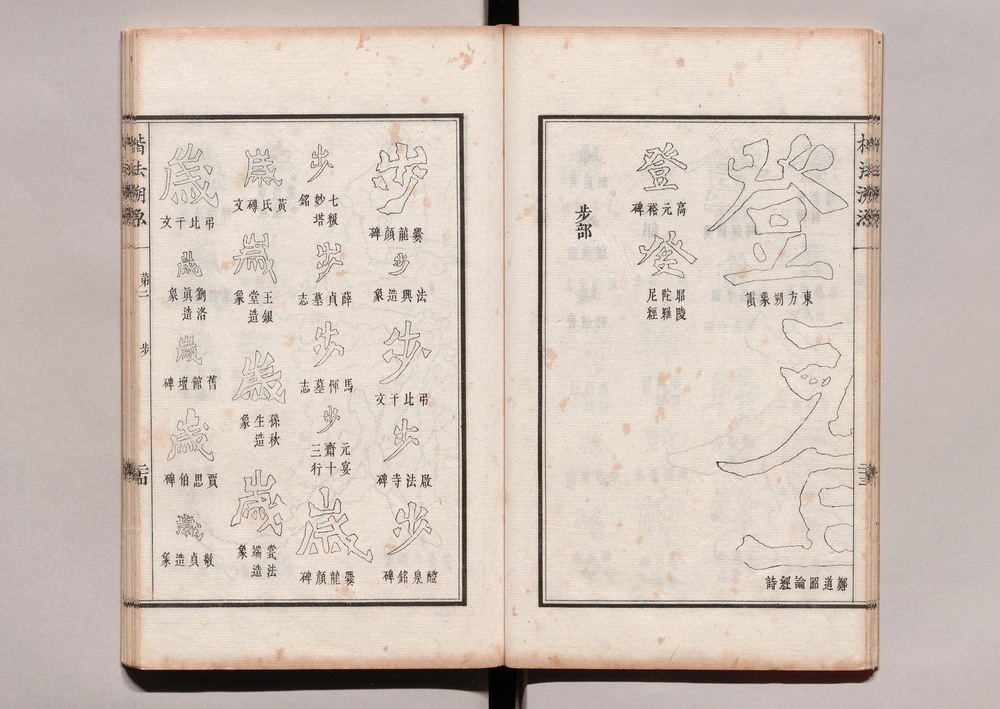 楷法溯源
登
東方朔象讚
登
鄭道昭論經詩
登
高元裕碑
登
耶陵陀羅尼經
步部
步
爨龍顏碑
步
法興造象
步
弔比干文
步
啟法寺碑
步
醴泉銘碑
步
七級妙塔銘
步
薛貞墓志
步
馬惲墓志
步
元宴齋十三行
歲
爨龍顏碑
歲
黃氏磚文
歲
王銀堂造象
歲
孫秋生造象
歲
雲法端造象
歲
弔比干文
歲
劉洛眞造象
歲
舊館壇碑
歲
賈思伯碑
歲
敬貞造象
楷法溯源
第二
步